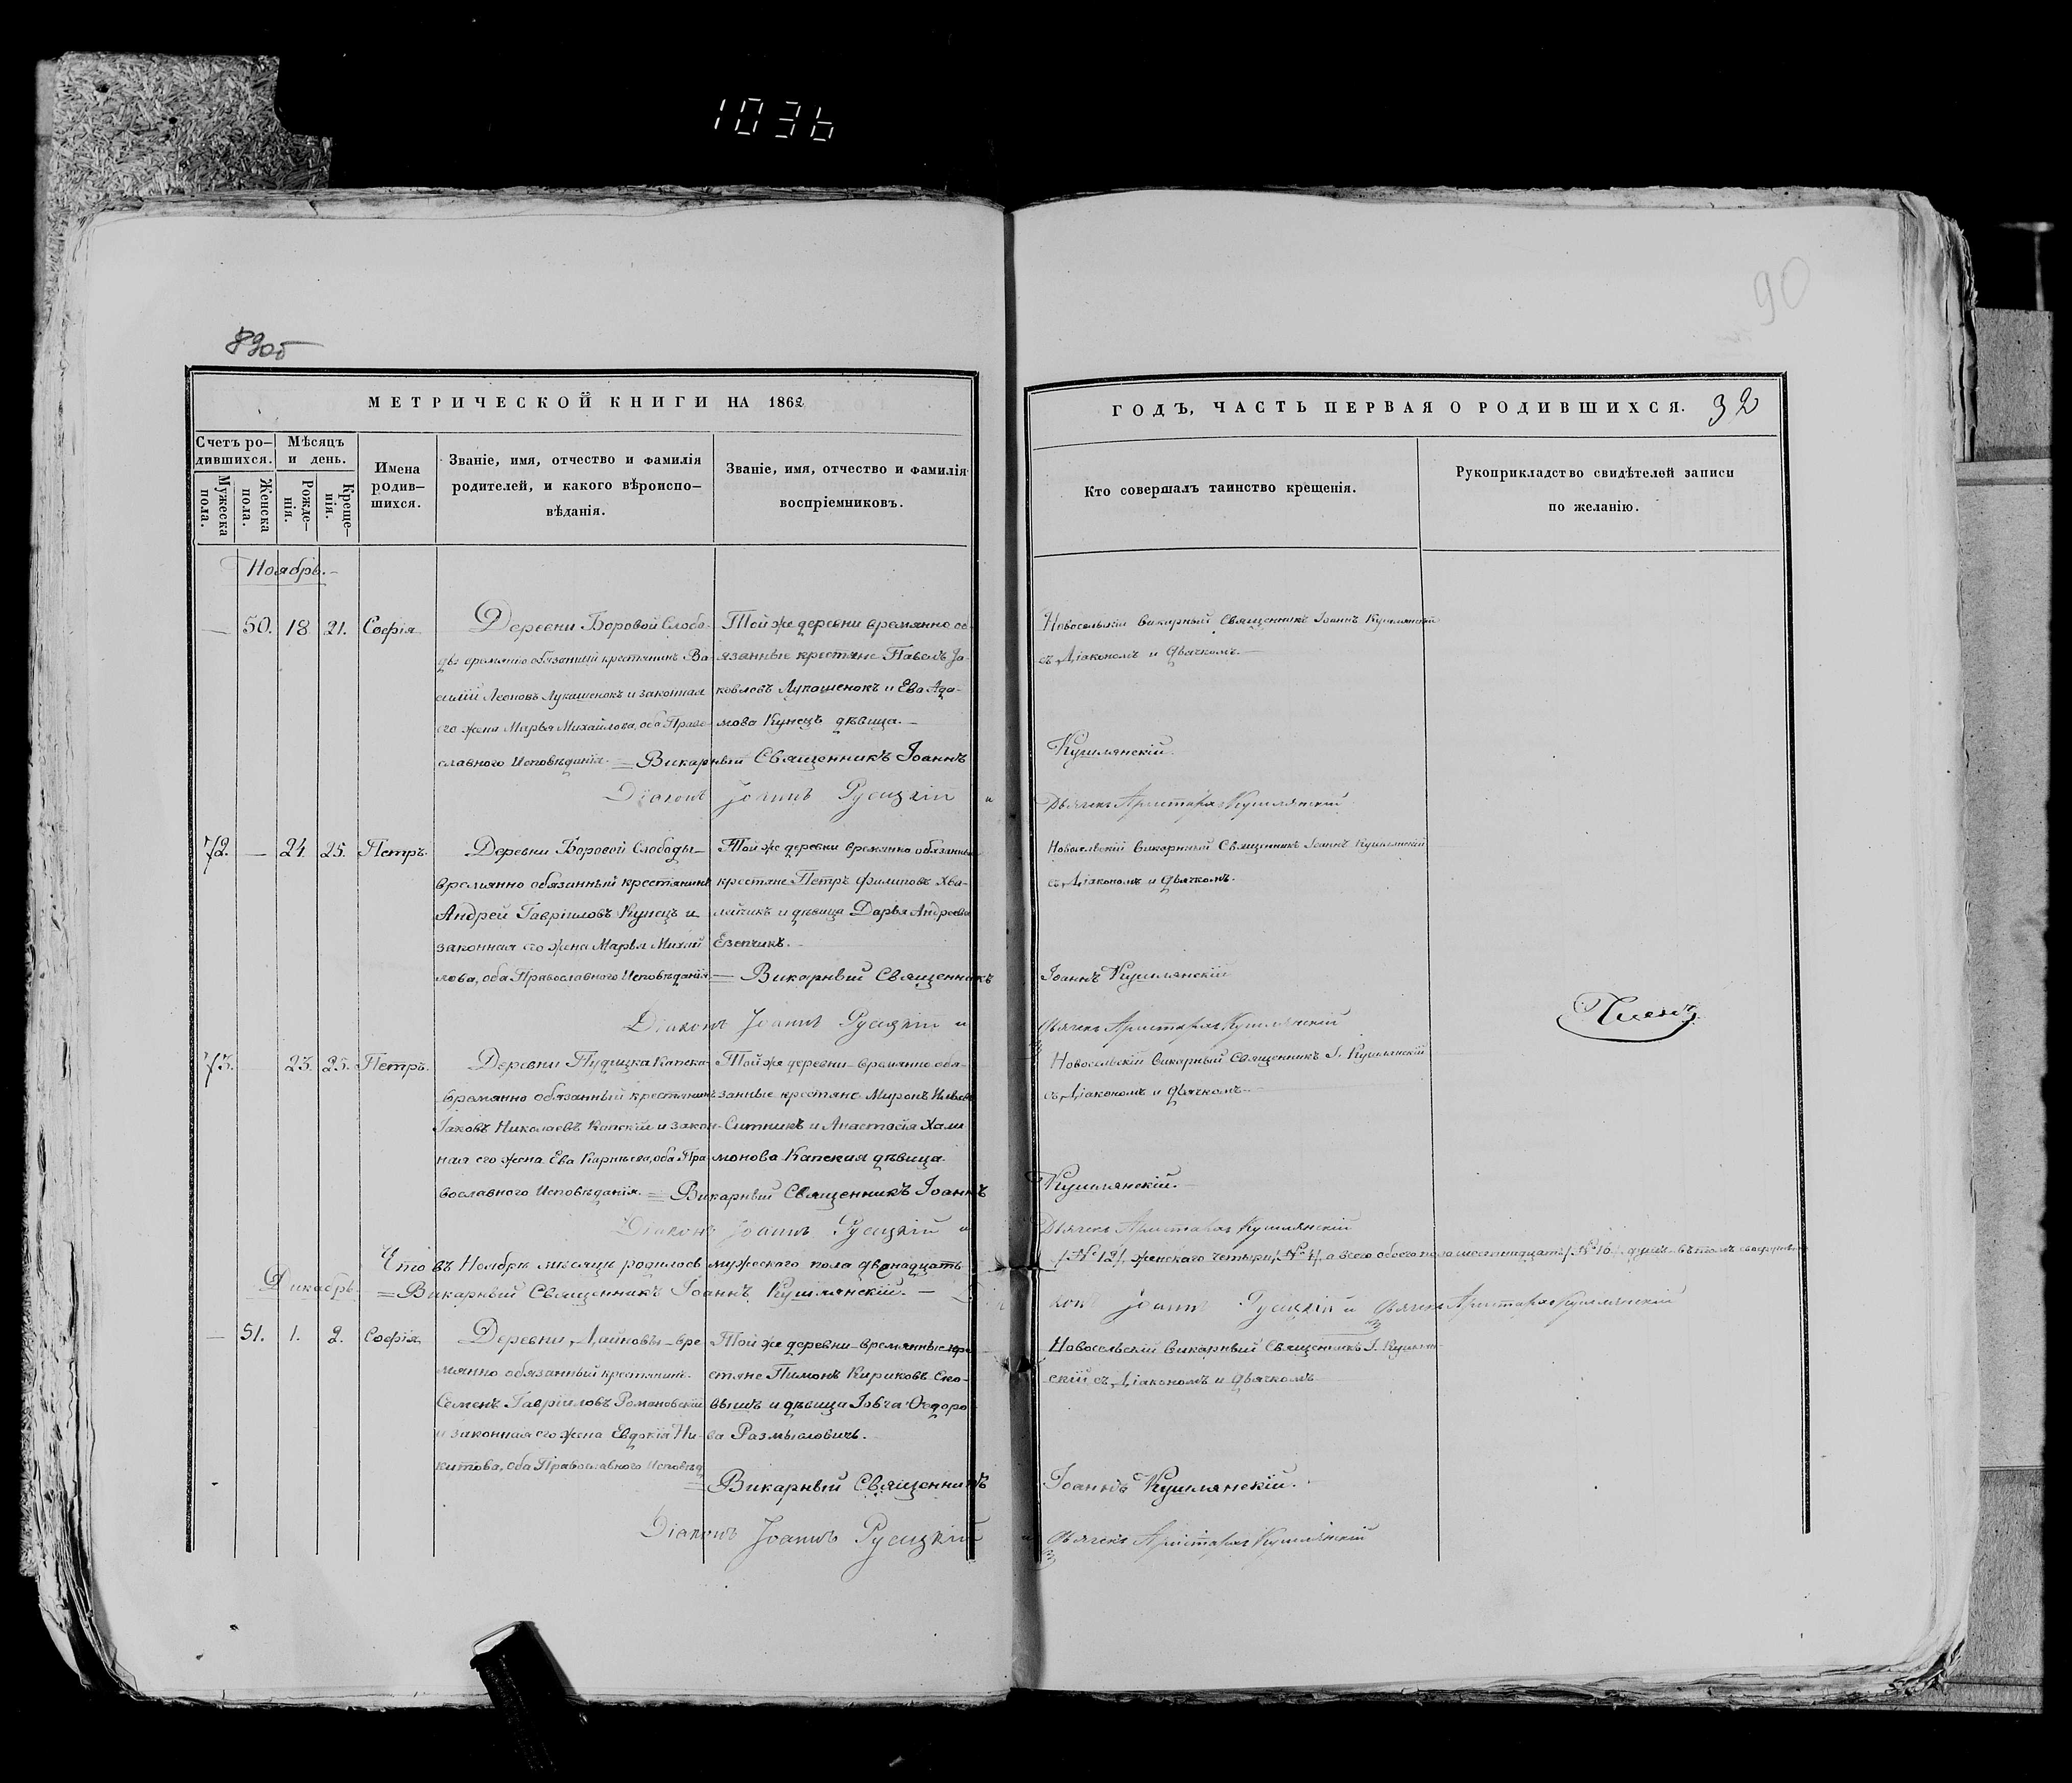 1036
89об
90
МЕТРИЧЕСКОЙ КНИГИ НА 1862
ГОДЪ, ЧАСТЬ ПЕРВАЯ О РОДИВШИХСЯ. 32
Счетъ ро-
дившихся.
Мужеска
пола.
Женска
пола.
Мѣсяцъ
и день.
Рожде-
нія.
Креще-
нія.
Имена
родив-
шихся.
Званіе, имя, отчество и фамилія
родителей, и какого вѣроиспо-
вѣданія.
Званіе, имя, отчество и фамилія
воспріемниковъ.
Кто совершалъ таинство крещенія.
Рукоприкладство свидѣтелей записи
по желанію.
Ноябрь.
— 50. 18 21. Софія
Деревни Боровой Слобо-
ды времянно обязанный крестянинъ Ва-
силій Леоновъ Лукашенокъ и законная
его жена Марья Михайлова, оба Право-
славного Исповѣданія.
Той же деревни времянно об-
язанные крестяне Павелъ Іа-
ковлевъ Лукашенокъ и Ева Ада-
мова Кунецъ дѣвица. —
Новосельскій викарный Священникъ Іоаннъ Кушлянскій
съ Діакономъ и Дьячкомъ. —
= Викарный Священникъ Іоаннъ Кушлянскій.
Діаконъ Іоаннъ Русицкій и Дьячекъ Аристархъ Кушлянскій
72. — 24. 25. Петръ.
Деревни Боровой Слободы
времянно обязанный крестянинъ
Андрей Гавріиловъ Кунецъ и
законная его жена Марья Михай
лова, оба Православного Исповѣданія
Той же деревни времянно обязанные
крестяне Петръ Филиповъ Хва-
лейчикъ и дѣвица Дарья Андреева
Езепчикъ. —
Новосельскій викарный Священникъ Іоаннъ Кушлянскій
съ Діакономъ и Дьячкомъ.
= Викарный Священникъ Іоаннъ Кушлянскій
Діаконъ Іоаннъ Русицкій и Дьячекъ Аристархъ Кушлянскій
73. 23. 25. Петръ.
Деревни Пудицка Капска
времянно обязанный крестянинъ
Іаковъ Николаевъ Капскій и закон-
ная его жена Ева Карнѣева, оба Пра
вославного Исповѣданія.
Той же деревни времянно обя-
занные крестяне Миронъ Ильевъ
Ситникъ и Анастасія Хали
монова Капская дѣвица.
Новосельскій викарный Священникъ І. Кушлянскій
съ Діакономъ и Дьячкомъ
= Викарный Священникъ Іоаннъ Кушлянскій.
Діаконъ Іоаннъ Русицкій и Дьячекъ Аристархъ Кушлянскій
Что въ Ноябрѣ мѣсяцѣ родилось мужеского пола двѣнадцать /№ 12/, женского четыри /№ 4/, а всего обоего пола шестнадцать /№ 16/ душъ въ томъ
Декабрь. = Викарный Священникъ Іоаннъ Кушлянскій. — Діаконъ Іоаннъ Русицкій и Дьячекъ Аристархъ Кушлянскій
— 51. 1. 2. Софія
Деревни Дайновы вре
мянно обязанный крестянинъ
Семенъ Гавріиловъ Романовскій
и законная его жена Евдокія Ни-
китова, оба Православного Исповѣд
Той же деревни времянные кре
стяне Пимонъ Кириковъ Ско-
вышъ и дѣвица Ѳедоро
ва Размысловичъ.
Новосельскій викарный Священникъ І. Кушлян-
скій съ Діакономъ и Дьячкомъ
= Викарный Священникъ Іоаннъ Кушлянскій.
Діаконъ Іоаннъ Русицкій и Дьячекъ Аристархъ Кушлянскій